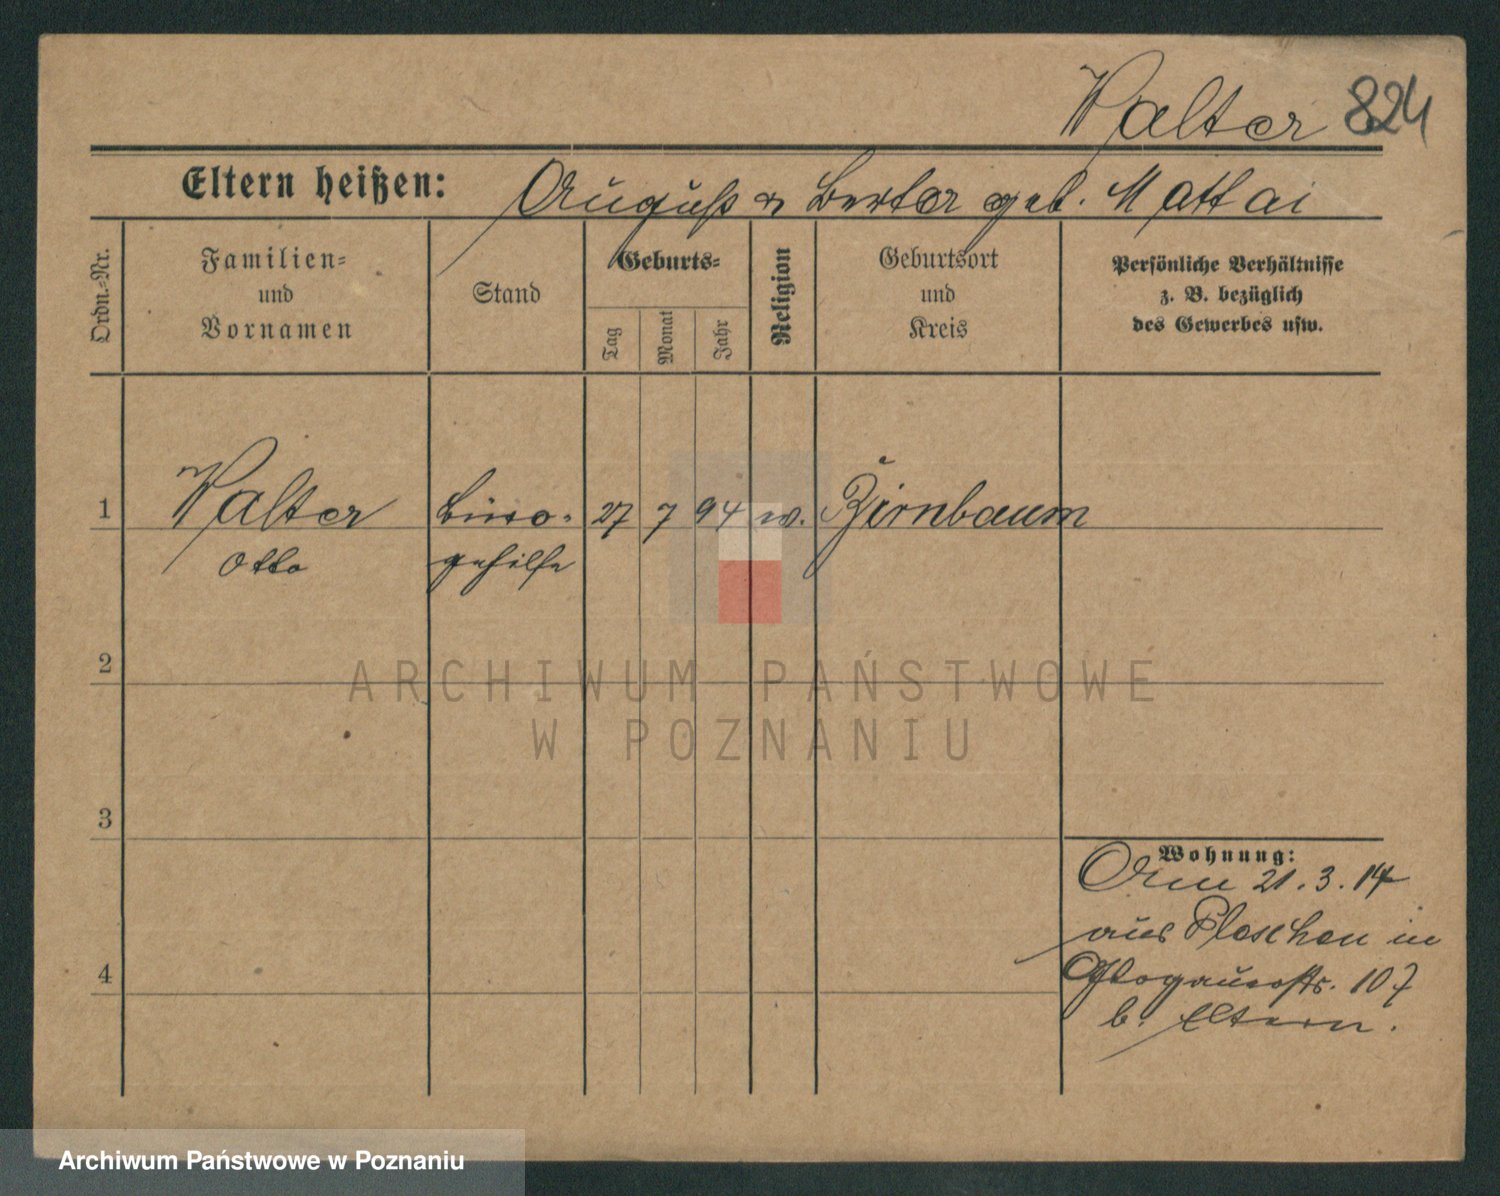 Walter 824
Eltern heißen: August u Berta geb. Mattai
Ordn.-Nr.
Familien-
und
Vornamen
Stand
Geburts-
Tag
Monat
Jahr
Religion
Geburtsort
und
Kreis
Persönliche Verhältnisse
z. B. bezüglich
des Gewerbes usw.
1 Walter Büro- 27 7 94 ev. Zirnbaum
Otto gehilfe
2
ARCHIWUM PAŃSTWOWE
W POZNANIU
3
Wohnung:
Am 21.3.14
aus Pleschen in
4 Glogauerstr. 107
b. Eltern.
Archiwum Państwowe w Poznaniu